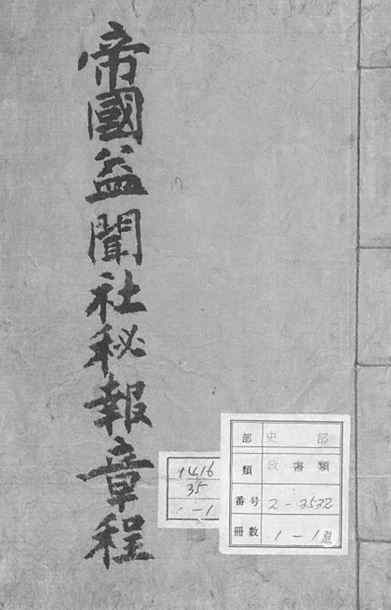 帝國益聞社秘報章程
1416
35
1-1
部 史 部
類 政書類
番号 2-3532
冊数 1-1